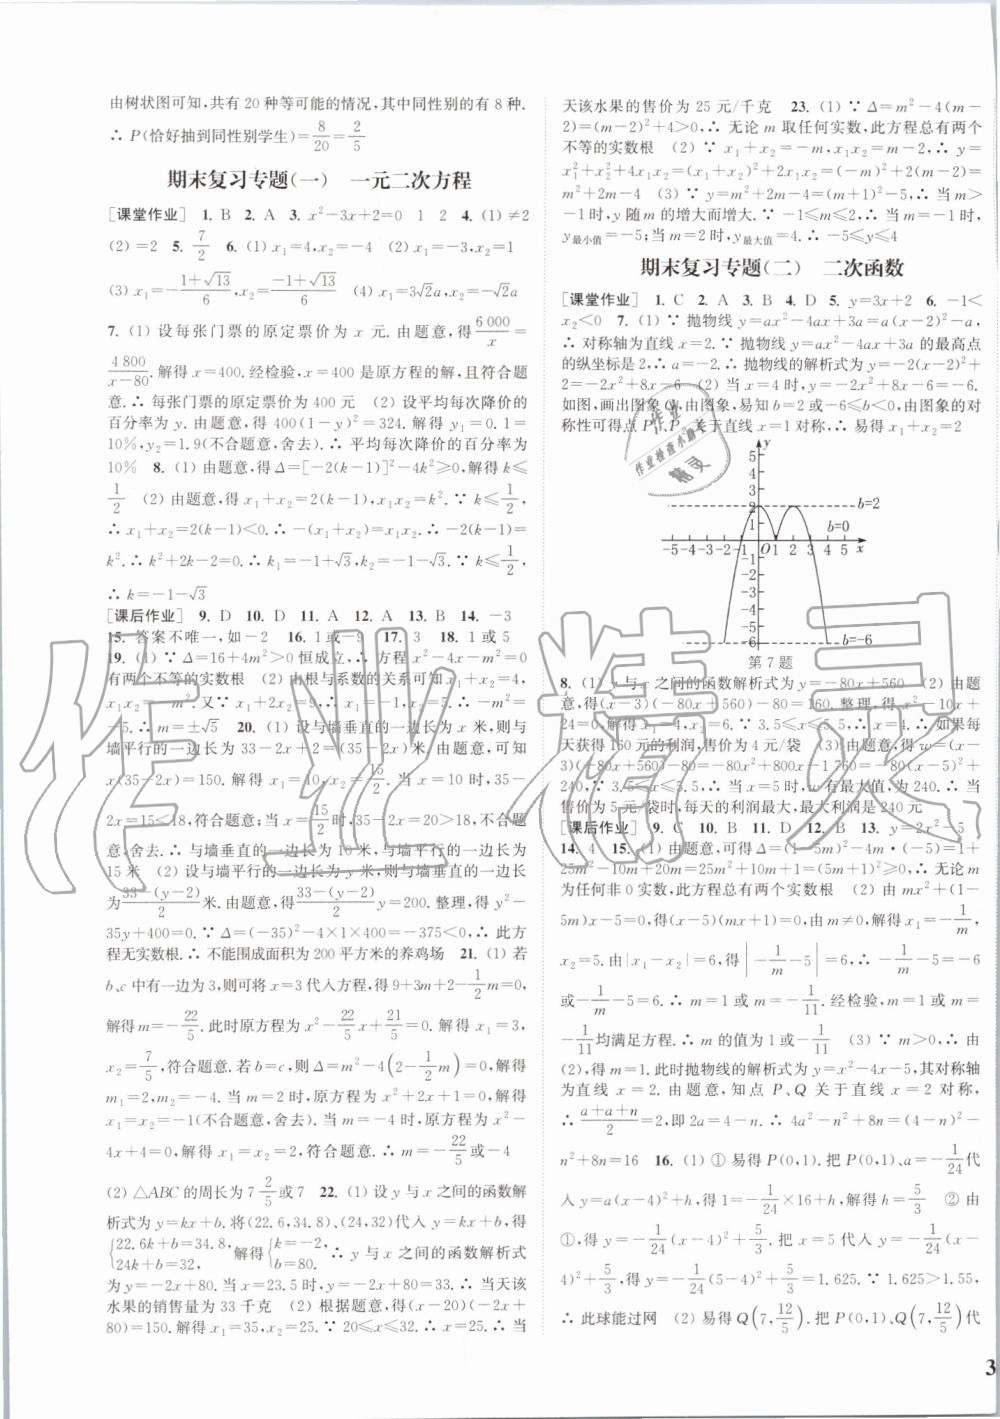 由树状图可知,共有 20 种等可能的情况,其中同性别的有 8 种.
∴ P(恰好抽到同性别学生)=8/20=2/5
期末复习专题(一) 一元二次方程
[课堂作业] 1. B 2. A 3. x²-3x+2=0 1 2 4. (1) ≠2
(2) =2 5. 7/2 6. (1) x₁=4,x₂=-4 (2) x₁=-3,x₂=1
(3) x₁=-(1+√13)/6,x₂=(-1+√13)/6 (4) x₁=3√2a,x₂=-√2a
7. (1) 设每张门票的原定票价为 x 元. 由题意,得6000/x=
4800/(x-80). 解得 x=400. 经检验,x=400 是原方程的解,且符合题
意.∴ 每张门票的原定票价为 400 元 (2) 设平均每次降价的
百分率为 y. 由题意,得 400(1-y)²=324. 解得 y₁=0.1=
10%,y₂=1.9(不合题意,舍去).∴ 平均每次降价的百分率为
10% 8. (1) 由题意,得 Δ=[-2(k-1)]²-4k²≥0,解得 k≤
1/2 (2) 由题意,得 x₁+x₂=2(k-1),x₁x₂=k².∵ k≤1/2,
∴ x₁+x₂=2(k-1)<0.∴ -(x₁+x₂)=x₁x₂.∴ -2(k-1)=
k².∴ k²+2k-2=0.∴ k₁=-1-√3,k₂=-1+√3.∵ k≤1/2,
∴ k=-1-√3
[课后作业] 9. D 10. D 11. A 12. A 13. B 14. -3
15. 答案不唯一,如-2 16. 1或-9 17. 3 18. 1或5
19. (1) ∵ Δ=16+4m²>0 恒成立,∴ 方程 x²-4x-m²=0
有两个不等的实数根 (2) 由根与系数的关系可知 x₁+x₂=4,
x₁x₂=-m². 又∵ x₁+
-5.∴ m=±√5 20. (1) 设与墙垂直的一边长为 x 米,则与
墙平行的一边长为 33-2x+2=(35-2x)米. 由题意,可知
x(35-2x)=150. 解得 x₁=10,x₂=15/2.∴ 当 x=10 时,35-
2x=15<18,符合题意;当 x=15/2时,35-2x=20>18,不合题
意,舍去.∴ 与墙垂直的一边长为 10 米,与墙平行的一边长为
15 米 (2) 设与墙平行的一边长为 y 米,则与墙垂直的一边长
为(33-(y-2))/2米. 由题意,得(33-(y-2))/2·y=200. 整理,得 y²-
35y+400=0.∵ Δ=(-35)²-4×1×400=-375<0,∴ 此方
程无实数根.∴ 不能围成面积为 200 平方米的养鸡场 21. (1) 若
b、c 中有一边为 3,则可将 x=3 代入方程,得 9+3m+2-1/2m=0,
解得 m=-22/5. 此时原方程为 x²-22/5x+21/5=0. 解得 x₁=3,
x₂=7/5,符合题意. 若 b=c,则 Δ=m²-4(2-1/2m)=0,解得
m₁=2,m₂=-4. 当 m=2 时,原方程为 x²+2x+1=0,解得
x₁=x₂=-1(不合题意,舍去). 当 m=-4 时,原方程为 x²-
4x+4=0,解得 x₁=x₂=2,符合题意.∴ m=-22/5或-4
(2) △ABC 的周长为 7 2/5或 7 22. (1) 设 y 与 x 之间的函数解
析式为 y=kx+b. 将(22.6,34.8)、(24,32)代入 y=kx+b,得
{22.6k+b=34.8, 24k+b=32, 解得{k=-2, b=80. ∴ y 与 x 之间的函数解析式
为 y=-2x+80. 当 x=23.5 时,y=-2x+80=33.∴ 当天该
水果的销售量为 33 千克 (2) 根据题意,得(x-20)(-2x+
80)=150. 解得 x₁=35,x₂=25.∵ 20≤x≤32,∴ x=25.∴ 当
天该水果的售价为 25 元/千克 23. (1) ∵ Δ=m²-4(m-
2)=(m-2)²+4>0,∴ 无论 m 取任何实数,此方程总有两个
不等的实数根 (2) ∵ x₁+x₂=-m,x₁x₂=m-2,∴ y=
x₁²+x₂²+4x₁x₂=(x₁+x₂)²+2x₁x₂=(-m)²+2(m-2)=
m²+2m-4 (3) ∵ y=m²+2m-4=(m+1)²-5,∴ 当 m>
-1 时,y 随 m 的增大而增大.∵ -1≤m≤2,∴ 当 m=-1时,
y最小值=-5;当 m=2 时,y最大值=4.∴ -5≤y≤4
期末复习专题(二) 二次函数
[课堂作业] 1. C 2. A 3. B 4. D 5. y=3x+2 6. -1<
x₂<0 7. (1) ∵ 抛物线 y=ax²-4ax+3a=a(x-2)²-a,
∴ 对称轴为直线 x=2.∵ 抛物线 y=ax²-4ax+3a 的最高点
的纵坐标是 2,∴ a=-2.∴ 抛物线的解析式为 y=-2(x-2)²+
2=-2x²+8x-6 (2) 当 x=4 时,y=-2x²+8x-6=-6.
如图,画出图象 G,由图象,易知 b=2 或-6≤b<0,由图象的对
称性可得点 P₁、P₂ 关于直线 x=1 对称,∴ 易得 x₁+x₂=2
y
5
4
3
2
1
b=2
b=0
-5 -4 -3 -2 -1 O 1 2 3 4 5 x
-1
-2
-3
-4
-5
-6
b=-6
第 7 题
8. (1) y 与 x 之间的函数解析式为 y=-80x+560 (2) 由题
意,得(x-3)(-80x+560)-80=160. 整理,得 x²-10x+
24=0. 解得 x₁=4,x₂=6.∵ 3.5≤x≤5.5,∴ x=4.∴ 如果每
天获得 160 元的利润,售价为 4 元/袋 (3) 由题意,得 w=(x-
3)(-80x+560)-80=-80x²+800x-1760=-80(x-5)²+
240.∵ 3.5≤x≤5.5,∴ 当 x=5 时,w 有最大值,为 240.∴ 当
售价为 5 元/袋时,每天的利润最大,最大利润是 240 元
[课后作业] 9. C 10. B 11. D 12. B 13. y=2x²-5
14. 4 15. (1) 由题意,可得 Δ=(1-5m)²-4m·(-5)=1+
25m²-10m+20m=25m²+10m+1=(5m+1)²≥0,∴ 无论 m
为任何非 0 实数,此方程总有两个实数根 (2) 由 mx²+(1-
5m)x-5=0,得(x-5)(mx+1)=0,由 m≠0,解得 x₁=-1/m,
x₂=5. 由|x₁-x₂|=6,得|-1/m-5|=6.∴ -1/m-5=6
或-1/m-5=-6.∴ m=1 或 m=-1/11. 经检验,m=1 或 m=
-1/11均满足方程.∴ m 的值为 1 或-1/11 (3) ∵ m>0,∴ 由
(2),得 m=1. 此时抛物线的解析式为 y=x²-4x-5,其对称轴
为直线 x=2. 由题意,知点 P、Q 关于直线 x=2 对称,
∴ (a+a+n)/2=2,即 2a=4-n.∴ 4a²-n²+8n=(4-n)²-
n²+8n=16 16. (1) ① 易得 P(0,1). 把 P(0,1)、a=-1/24代
入 y=a(x-4)²+h,得 1=-1/24×16+h,解得 h=5/3 ② 由
①,得 y=-1/24(x-4)²+5/3. 把 x=5 代入 y=-1/24(x-
4)²+5/3,得 y=-1/24(5-4)²+5/3=1.625.∵ 1.625>1.55,
∴ 此球能过网 (2) 易得 Q(7,12/5). 把 P(0,1)、Q(7,12/5)代
3